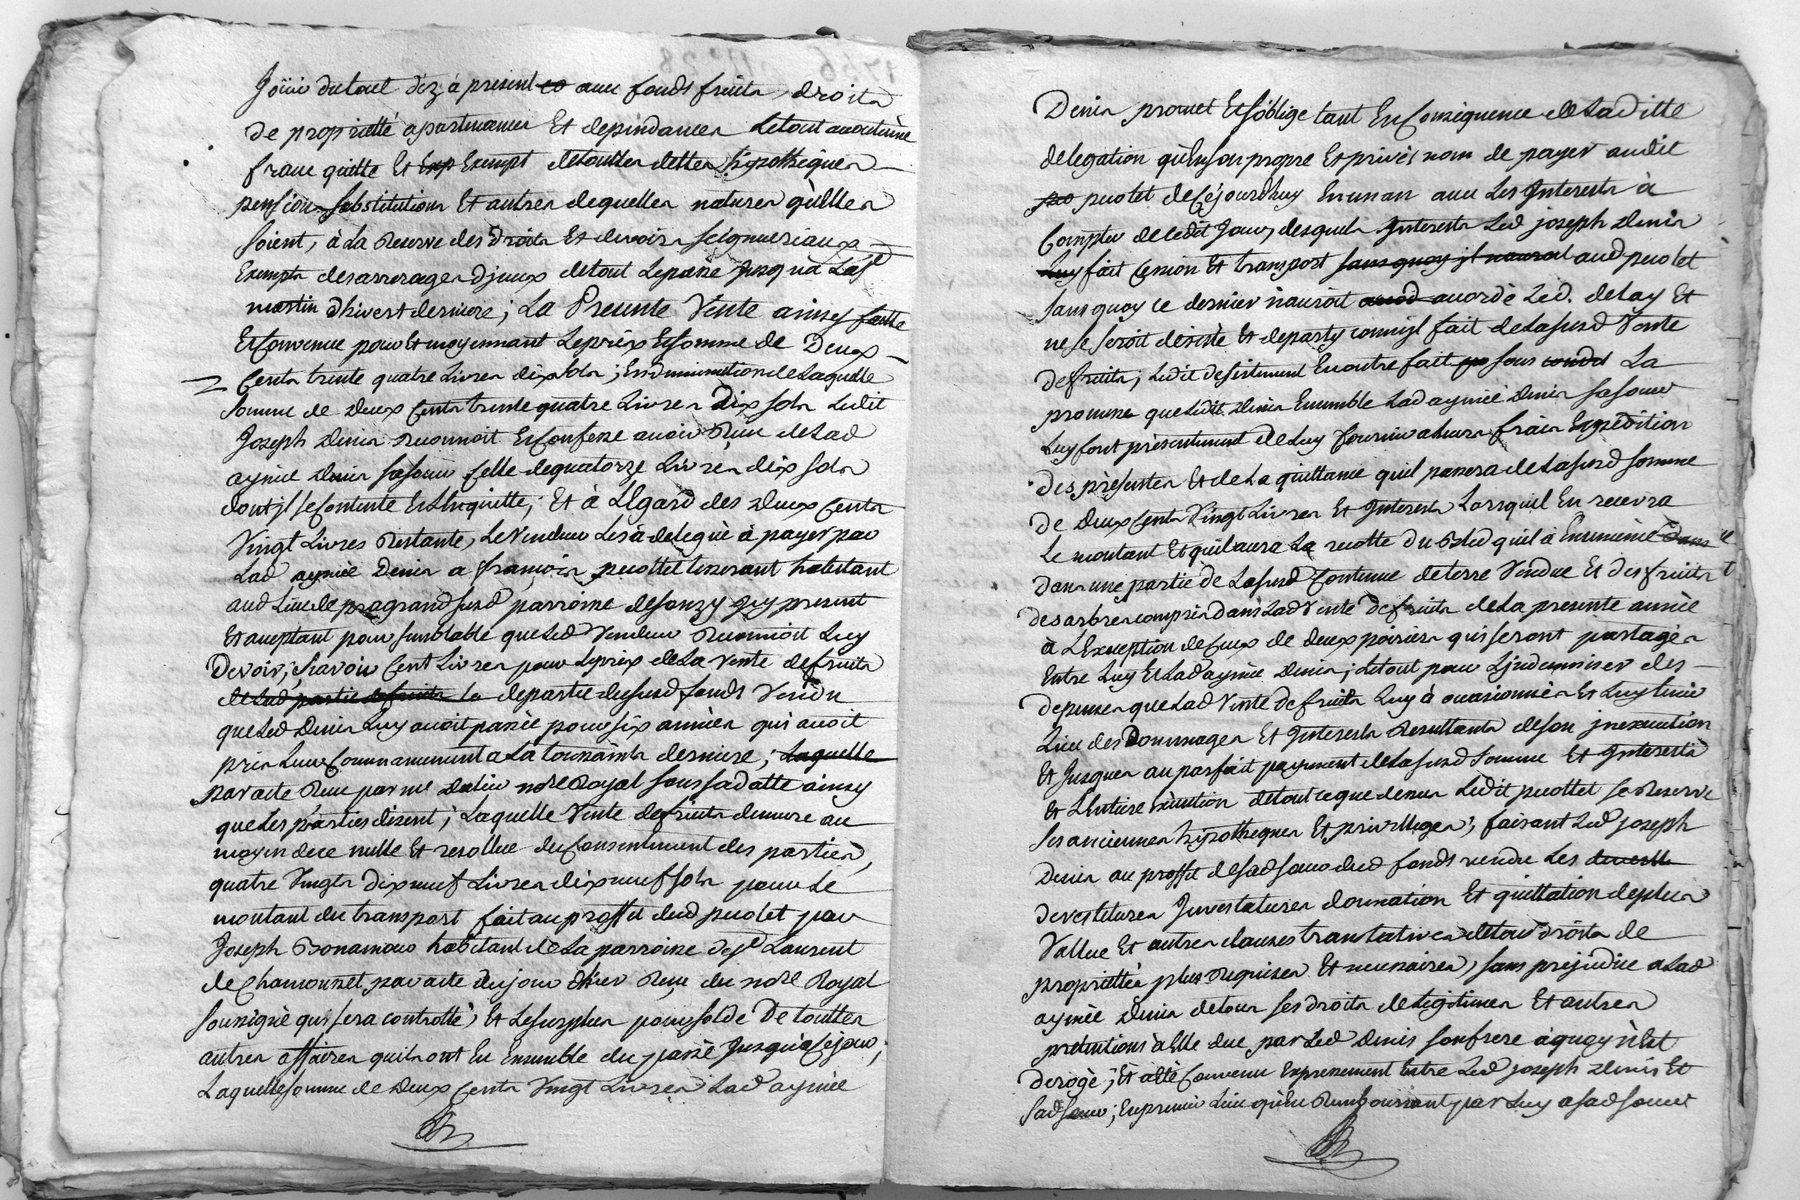 Joüir dutout déz à present avec fonds fruits, droits
de proprietté apartenances Et dependances letout audutiène
franc quitte Et Exempt detouttes dettes hipothèques
pension substitutions Et autres dequelles natures qu'elles
soient, à La Reserve des Droits Et devoirs seigneuriaux
Exempts desarrerages d'jceux detout Lepassé Jusqua La St
martin dhivert derniere; La Presente Vente ainsy faitte
Et Convenue pour Et moyennant Leprix Et somme de Deux
Cents trente quatre Livres dix sols; En diminution de Laquelle
somme de Deux Cents trente quatre Livres Dix sols Ledit
Joseph Denis reconnoit Et Confesse avoir Reçu de Lad
aymée Denis sa soeur Celle dequatorze Livres dix sols
dont jl se Contente Et L'en quitte; Et à L'Egard des deux Cents
Vingt Livres Restants, Le Vendeur Les à delegué à payer par
Lad aymée Denis a françois pucottet tisserant habitant
aud Lieu de pragrand susd parroisse desonzy jcy present
Et acceptant pour semblable que Led Vendeur Reconnoit Luy
Devoir; sçavoir Cent Livres pour Leprix de La vente defruits
de Lad partie defruits departie dususd fonds Vendu
que Led Denis Luy avoit passée pour six années qui avoit
pris Leur Commancement a La toussaints derniere; Laquelle
par acte Reçu par me notre Royal sous sa datte ainsy
que Les parties disent; Laquelle Vente defruits demeure au
moyen de ce nulle Et resollue du Consentement des parties,
quatre Vingts Dix neuf Livres dix neuf sols pour Le
montant du transport fait au proffit dud pucotet par
Joseph Bonamour habitant de La parroisse de St Laurent
de Chamousset par acte du jour d'hier Reçu du notre Royal
soussigné qui sera controllé, Et Lesurplus pour solde De touttes
autres affaires quils ont Eu Ensemble du passé Jusqua Cejour;
Laquelle somme de Deux Cents Vingt Livres Lad aymée
Denis promet Et s'oblige tant En Consequence de Laditte
delegation qu'En son propre Et privés nom de payer audit
pucotet de Cejourd'huy En un an avec Les Interests à
Compter de Cedit Jour, desquels Interests Led joseph Denis
Luy fait Cession Et transport sans quoy jl nauroit aud pucotet
sans quoy ce dernier n'auroit accordé Led. delay Et
ne se seroit desisté Et departy comm'jl fait de Lasusd Vente
defruits; Ledit desistement Encoutre fait sous La
promesse que Ledit Denis Ensemble Lad aymée Denis sa soeur
Luy font presentement de Luy fournir a Leurs frais Expedition
des presentes Et de La quittance quil passera de Lasusd somme
de Deux Cents Vingt Livres Et Interests Lorsquil En recevra
Le montant Et quil aura La recolte du Bled quil à Ensemencé
dans une partie de Lasusd Contenue deterre Vendue Et des fruits
des arbres compris dans Lad Vente defruits de La presente année
à L'Exception de Ceux de deux poiriers qui seront partagés
Entre Luy Et Lad aymée Denis; Letout pour L'jndemniser des
depenses que Lad Vente defruits Luy à occasionnées Et Luy tenir
Lieu des Dommages Et Interests Resultants de son jnexecution
Et Jusques au parfait payement de Lasusd Somme Et Interests
Et L'Entiere Execution detout ce que dessus Ledit pucottet se Reserve
ses anciennes hypotheques Et privilleges; faisant Led joseph
Denis au proffit de sad soeur dud fonds vendu Les
devestitures Jnvestitures donnation Et quittation deplus
Vallue Et autres clauses translatives detous droits de
proprietté plus requises Et necessaires, sans prejudice a Lad
aymée Denis detous ses droits de Legitimes Et autres
pretentions à Elle due par Led Denis son frere à quoy n'Est
derogé; Et a Eté Convenu Expressement Entre Led joseph Denis Et
Sad soeur; En premier Lieu qu'En Remboursant par Luy a sad soeur